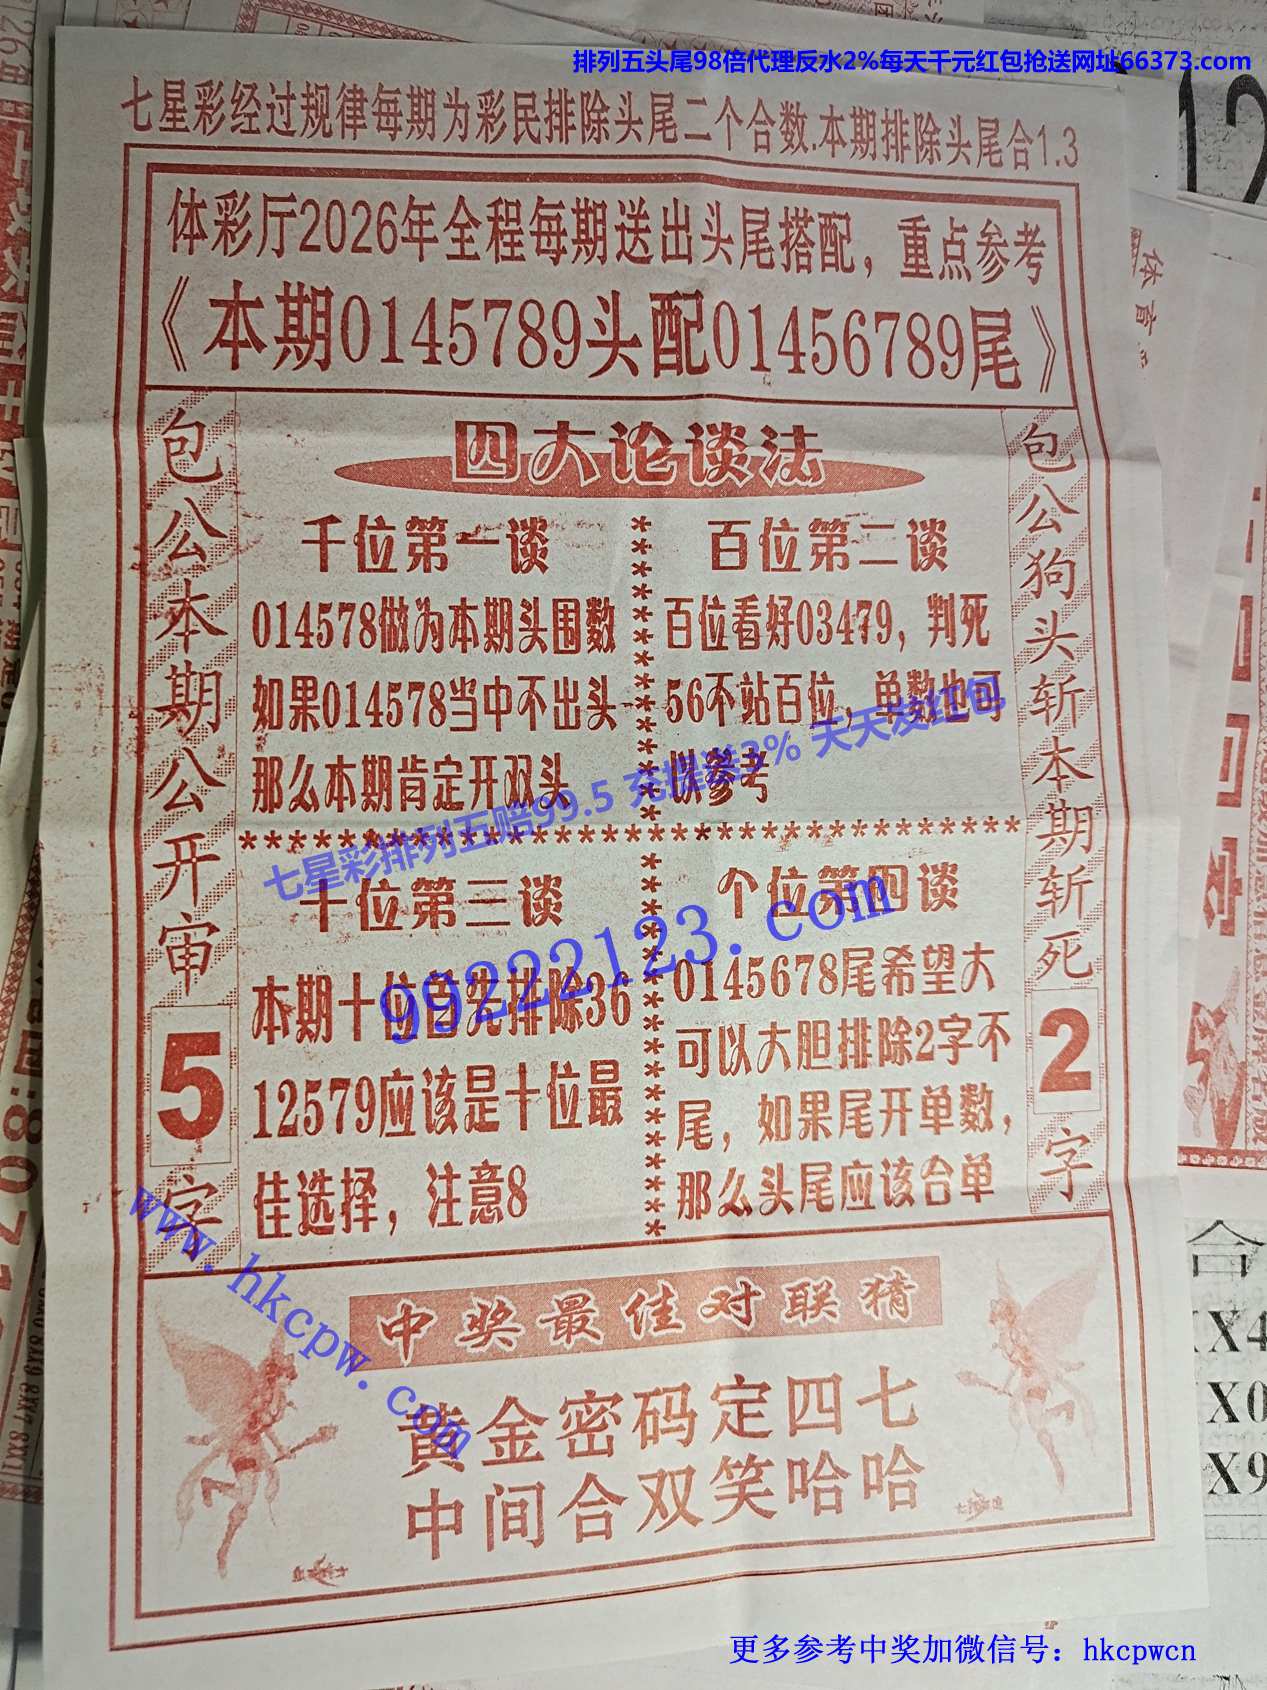 排列五头尾98倍代理反水2%每天千元红包抢送网址66373.com
七星彩经过规律每期为彩民排除头尾二个合数.本期排除头尾合1.3
体彩厅2026年全程每期送出头尾搭配，重点参考
《本期0145789头配01456789尾》
四大论谈法
包公本期公开审5字
千位第一谈
014578做为本期头围数
如果014578当中不出头
那么本期肯定开双头
百位第二谈
百位看好03479，判死
56不站百位，单数也可
供参考
包公狗头斩本期斩死2字
七星彩排列五赔99.5 充提送3% 天天发红包
十位第三谈
本期十位首先排除36
12579应该是十位最
佳选择，注意8
个位第四谈
0145678尾希望大
可以大胆排除2字不
尾，如果尾开单数，
那么头尾应该合单
99222123.com
www.hkcpw.com
中奖最佳对联猜
黄金密码定四七
中间合双笑哈哈
更多参考中奖加微信号：hkcpwcn
12
体育
合
X4
X0
X9